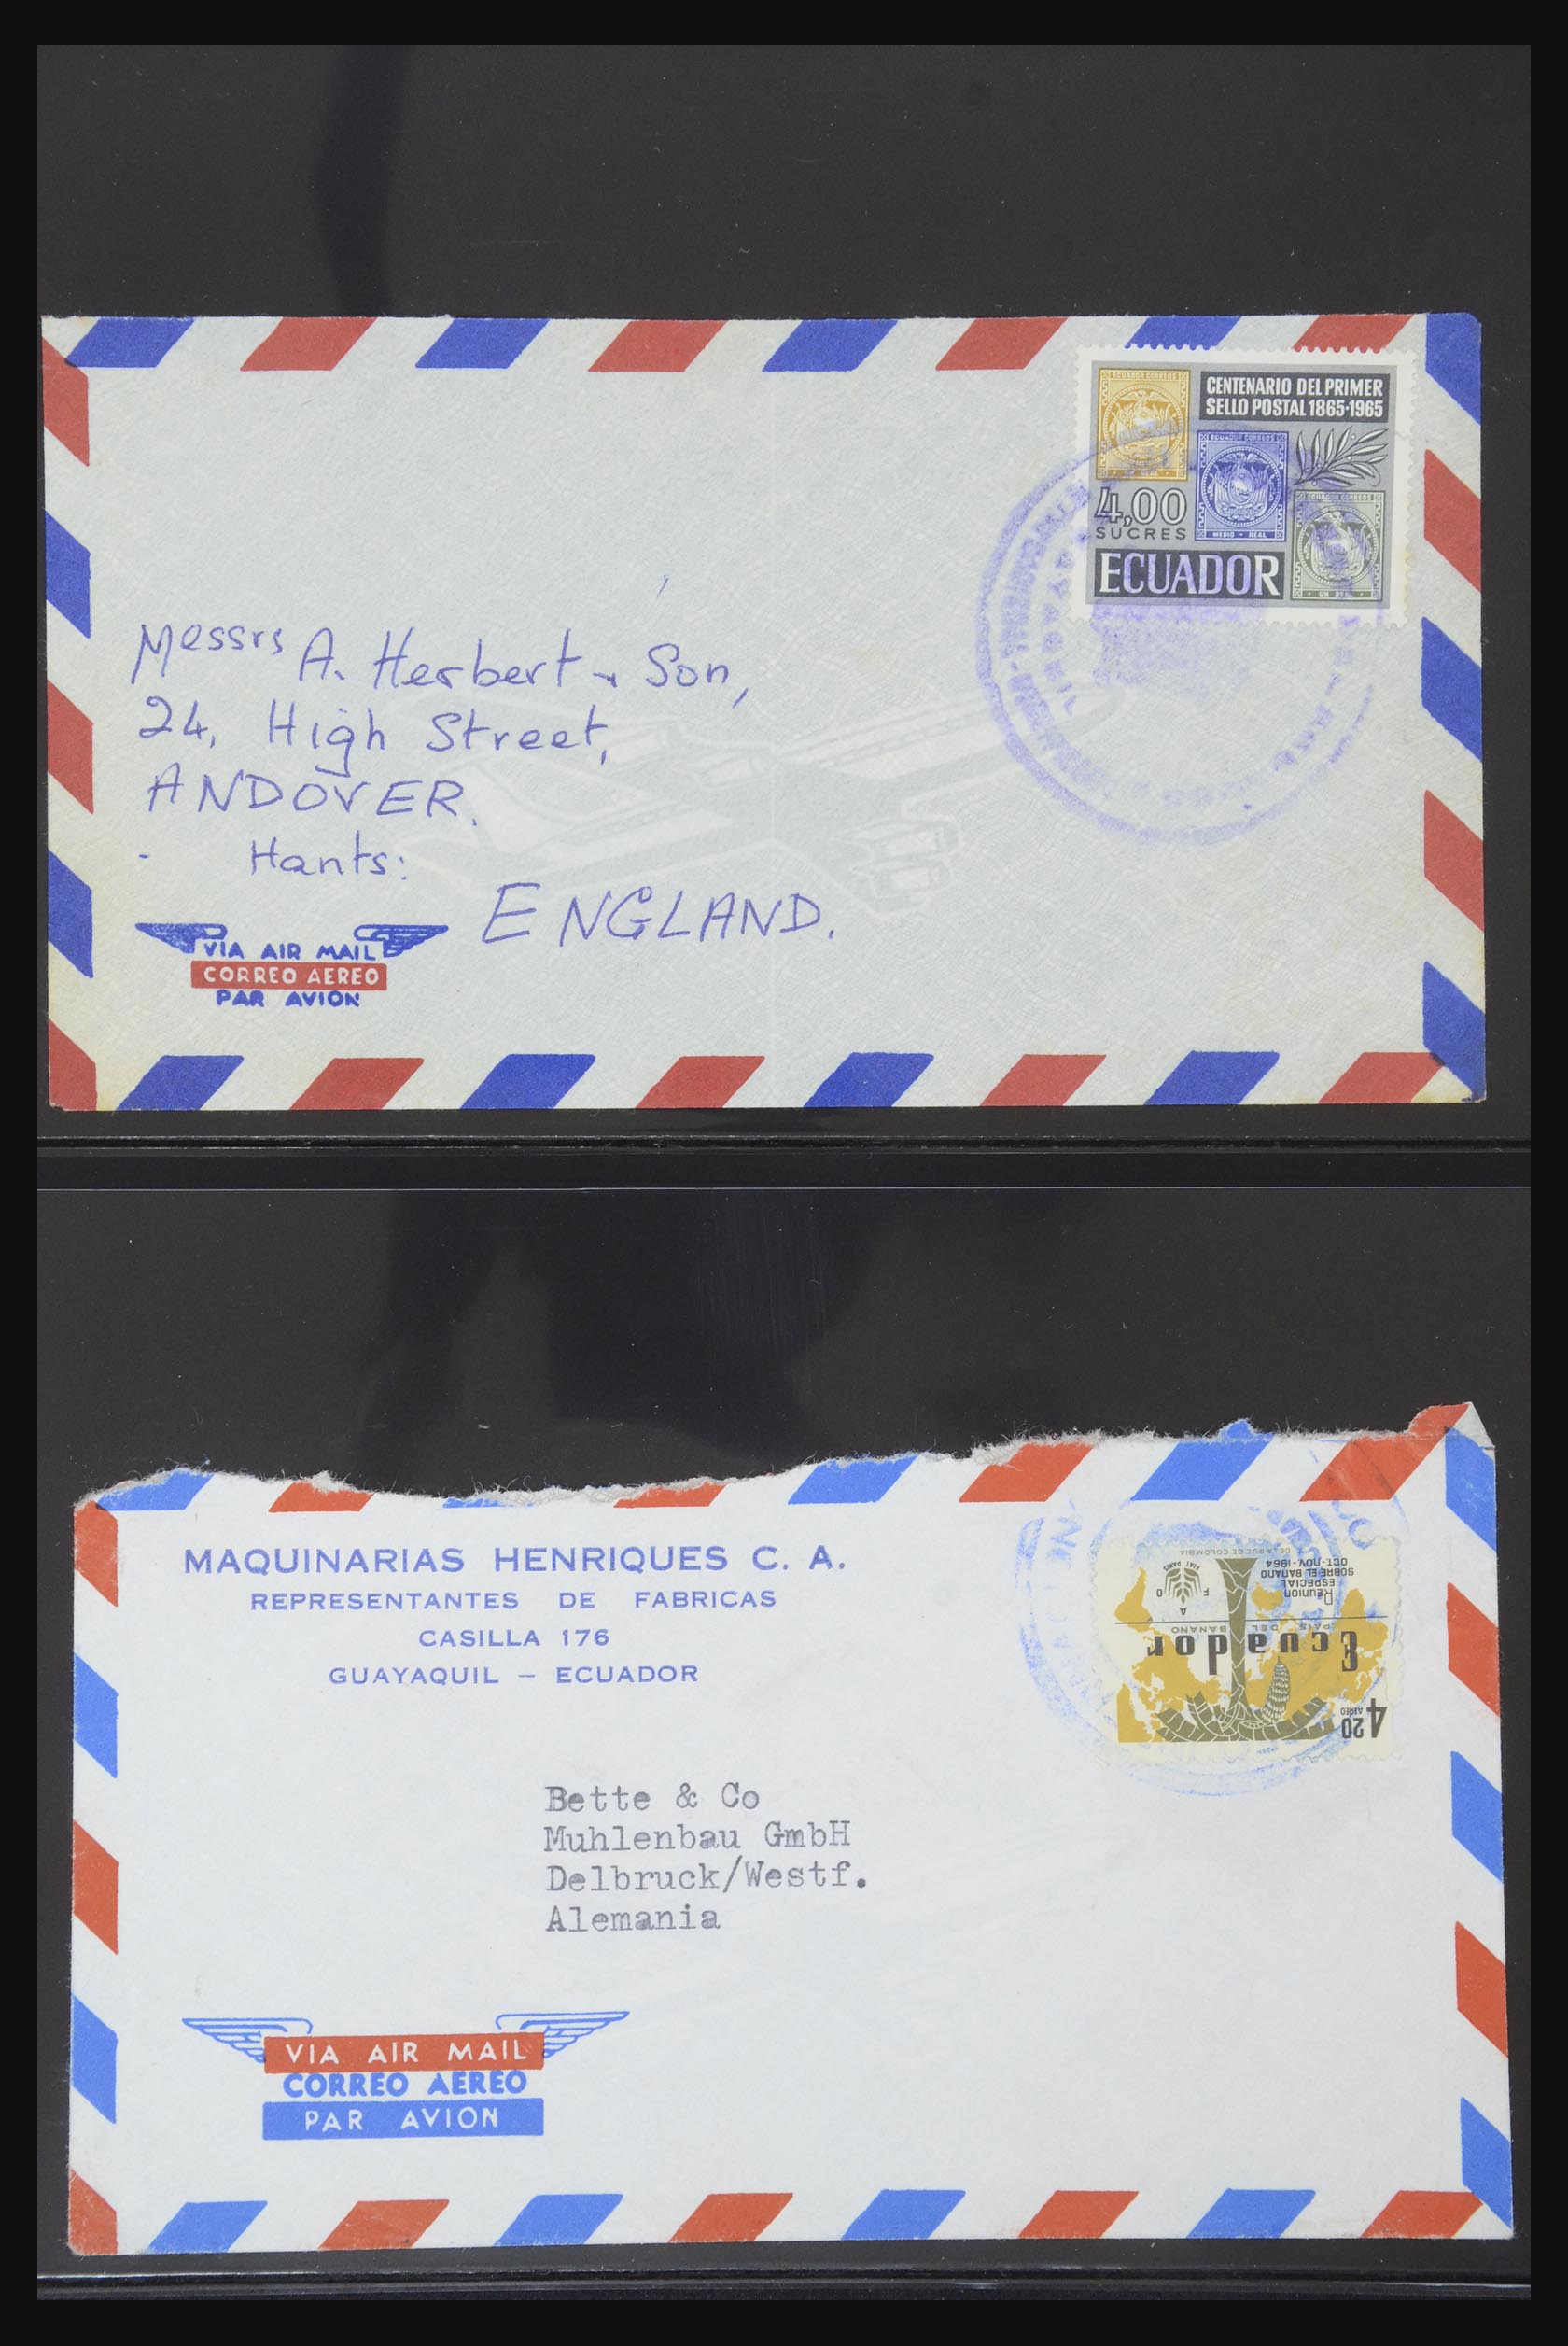 CENTENARIO DEL PRIMER
SELLO POSTAL 1865-1965
ECUADOR CORREOS
ECUADOR CORREOS
MEDIO REAL
ECUADOR CORREOS
UN REAL
4,00
SUCRES
ECUADOR
GUAYAQUIL
Messrs A. Herbert & Son,
24, High Street,
ANDOVER.
Hants:
ENGLAND.
VIA AIR MAIL
CORREO AEREO
PAR AVION
MAQUINARIAS HENRIQUES C. A.
REPRESENTANTES DE FABRICAS
CASILLA 176
GUAYAQUIL – ECUADOR
4 20
AEREO
Ecuador
PAIS DEL BANANO
Reunion
ESPECIAL
SOBRE EL BANANO
OCT-NOV-1964
FAO
FIAT PANIS
Bette & Co
Muhlenbau GmbH
Delbruck/Westf.
Alemania
VIA AIR MAIL
CORREO AEREO
PAR AVION